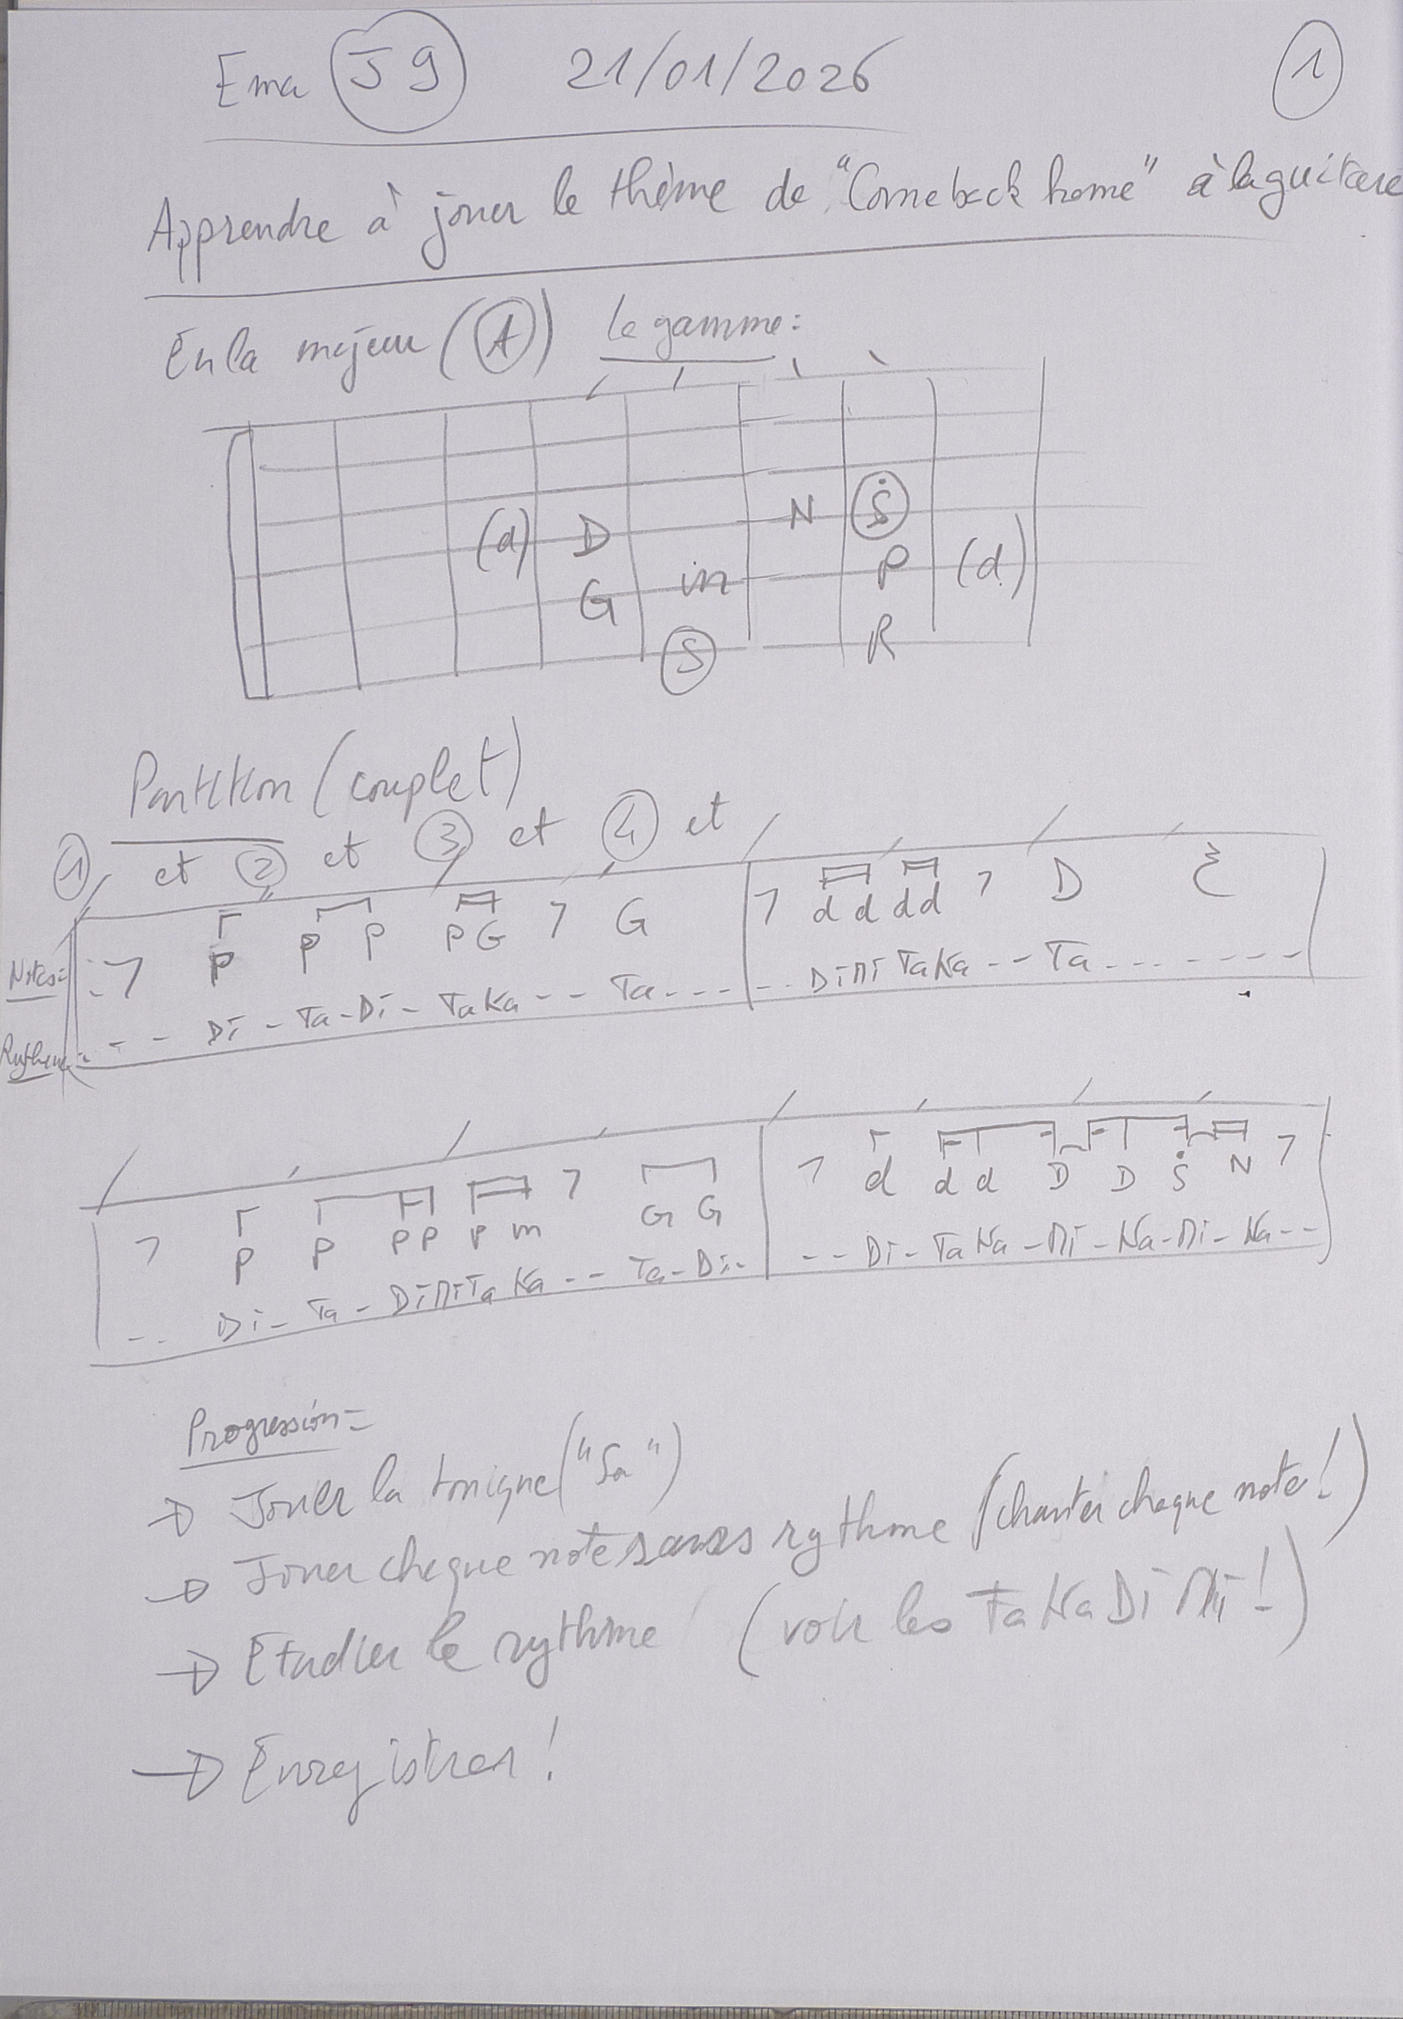 Ema J9 21/01/2026 1
Apprendre à jouer le thème de "Comeback home" à la guitare
En la majeur (A) La gamme:
N Ṡ
(d) D P (d)
G m
S R
Partition (couplet)
1 et 2 et 3 et 4 et
Notes: 7 P P P P G 7 G 7 d d d d 7 D
Rythme: - - Di - Ta - Di - TaKa - - Ta - - - - - DiMi TaKa - - Ta - - - - - - -
7 P P P P P m 7 G G 7 d d d D D Ṡ N 7
- - Di - Ta - DiMiTaKa - - Ta - Di - - - Di - TaKa - Mi - Ka - Mi - Ka - -
Progression=
→ Jouer la tonique ("Sa")
→ Jouer chaque note sans rythme (chanter chaque note!)
→ Etudier le rythme (voir les TaKaDiMi!)
→ Enregistrer!